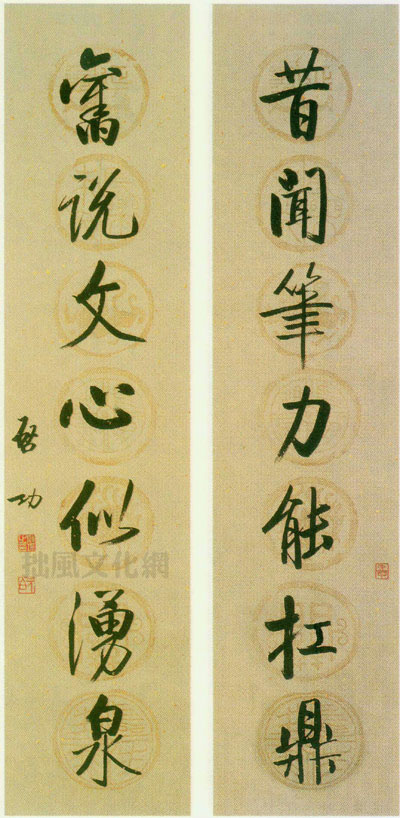 昔闻筆力能扛鼎
舊说文心似湧泉
啓功
拙風文化網